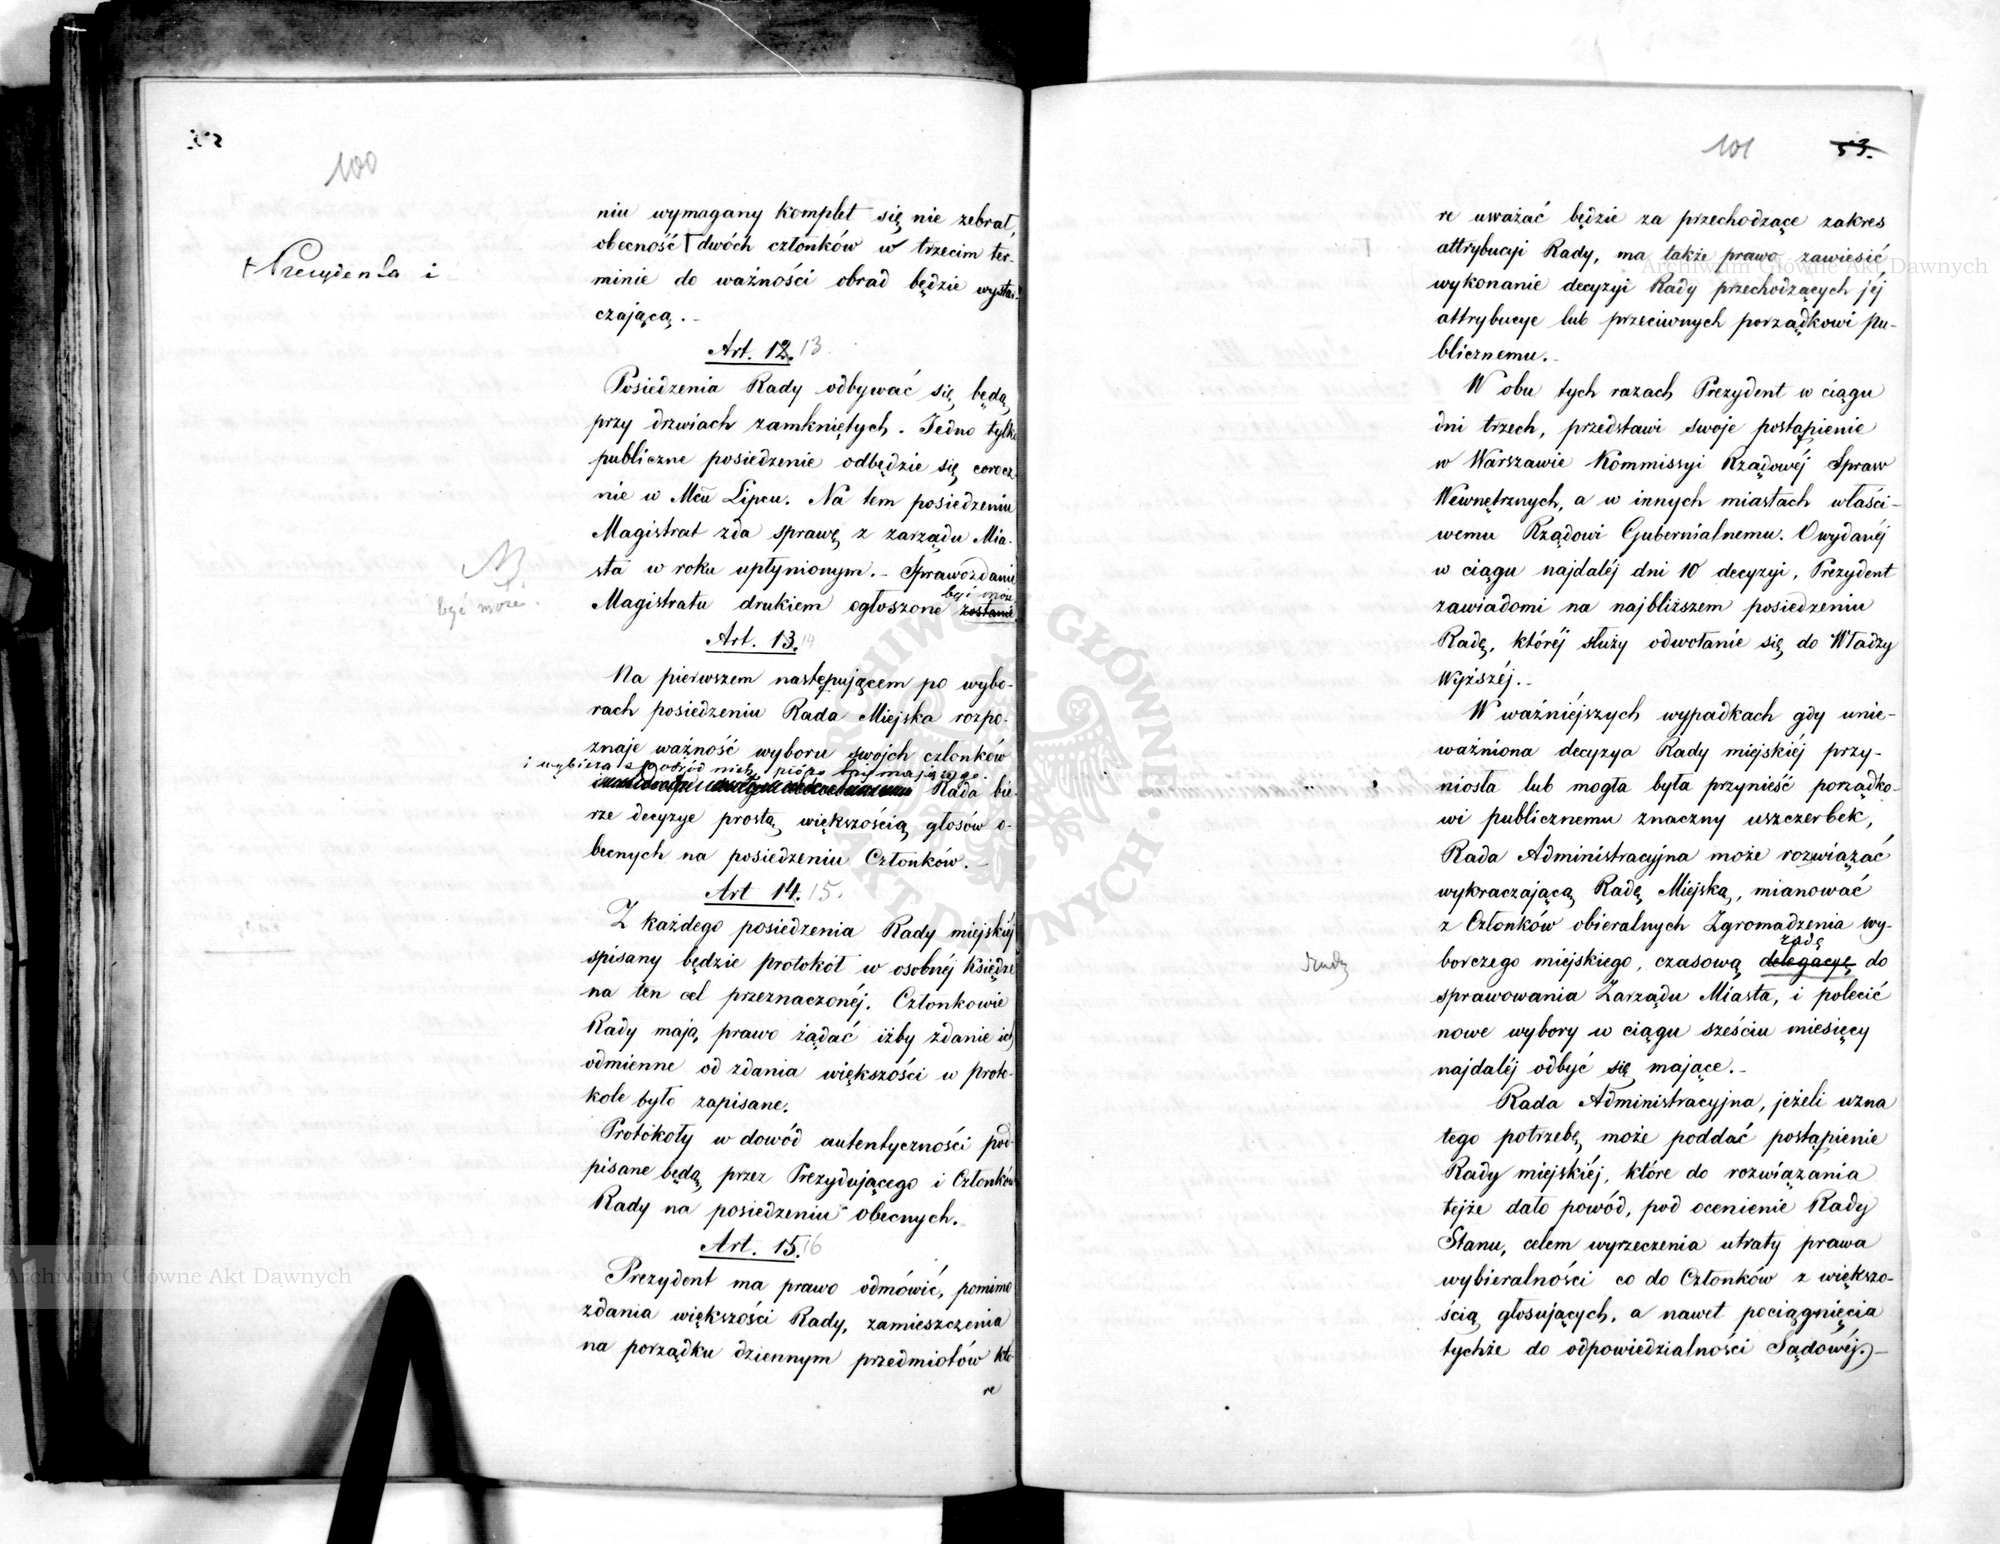 100
+ Prezydenta i
niu wymagany komplet się nie zebrał,
obecność dwóch członków w trzecim ter-
minie do ważności obrad będzie wystar-
czającą.-
Art. 12. 13.
Posiedzenia Rady odbywać się będą
przy drzwiach zamkniętych. Jedno tylko
publiczne posiedzenie odbędzie się corocz-
nie w Mcu Lipcu. Na tem posiedzeniu
Magistrat zda sprawę z zarządu Mia-
sta w roku upłynionym.- Sprawozdanie
być może
Magistratu drukiem ogłoszone zostanie.
być może.
Art. 13. 14
Na pierwszem następującem po wybo-
rach posiedzeniu Rada Miejska rozpo-
znaje ważność wyboru swojch członków
i wybiera z pośród nich pióro trzymającego.
Rada bie-
rze decyzye prostą większością głosów o-
becnych na posiedzeniu Członków.-
Art 14. 15.
Z każdego posiedzenia Rady miejskiéj
spisany będzie protokół w osobnéj Księdze
na ten cel przeznaczonéj. Członkowie
Rady mają prawo żądać iżby zdanie ich
odmienne od zdania większości w proto-
kole było zapisane.
Protokoły w dowód autentyczności pod-
pisane będą przez Prezydującego i Członków
Rady na posiedzeniu obecnych.
Art. 15. 16
Prezydent ma prawo odmówić, pomimo
zdania większości Rady, zamieszczenia
na porządku dziennym przedmiotów któ-
re
101 53.
re uważać będzie za przechodzące zakres
attrybucyi Rady, ma także prawo zawiesić
wykonanie decyzyi Rady przechodzących jéj
attrybucye lub przeciwnych porządkowi pu-
blicznemu.-
W obu tych razach Prezydent w ciągu
dni trzech, przedstawi swoje postąpienie
w Warszawie Kommissyi Rządowéj Spraw
Wewnętrznych, a w innych miastach właści-
wemu Rządowi Gubernialnemu. O wydanéj
w ciągu najdaléj dni 10 decyzyi, Prezydent
zawiadomi na najbliższem posiedzeniu
Radę, któréj służy odwołanie się do Władzy
Wyższéj.-
W ważniejszych wypadkach gdy unie-
ważniona decyzya Rady miejskiéj przy-
niosła lub mogła była przynieść porządko-
wi publicznemu znaczny uszczerbek,
Rada Administracyjna może rozwiązać
wykraczającą Radę Miejską, mianować
z Członków obieralnych Zgromadzenia wy-
radę
borczego miejskiego, czasową delegacyę do
sprawowania Zarządu Miasta, i polecić
nowe wybory w ciągu sześciu miesięcy
najdaléj odbyć się mające.-
Rada Administracyjna, jeżeli uzna
tego potrzebę, może poddać postąpienie
Rady miejskiéj, które do rozwiązania
tejże dało powód, pod ocenienie Rady
Stanu, celem wyrzeczenia utraty prawa
wybieralności co do Członków z większo-
ścią głosujących, a nawet pociągnięcia
tychże do odpowiedzialności Sądowéj.)-
Archiwum Główne Akt Dawnych
Archiwum Główne Akt Dawnych
ARCHIWUM GŁÓWNE AKT DAWNYCH